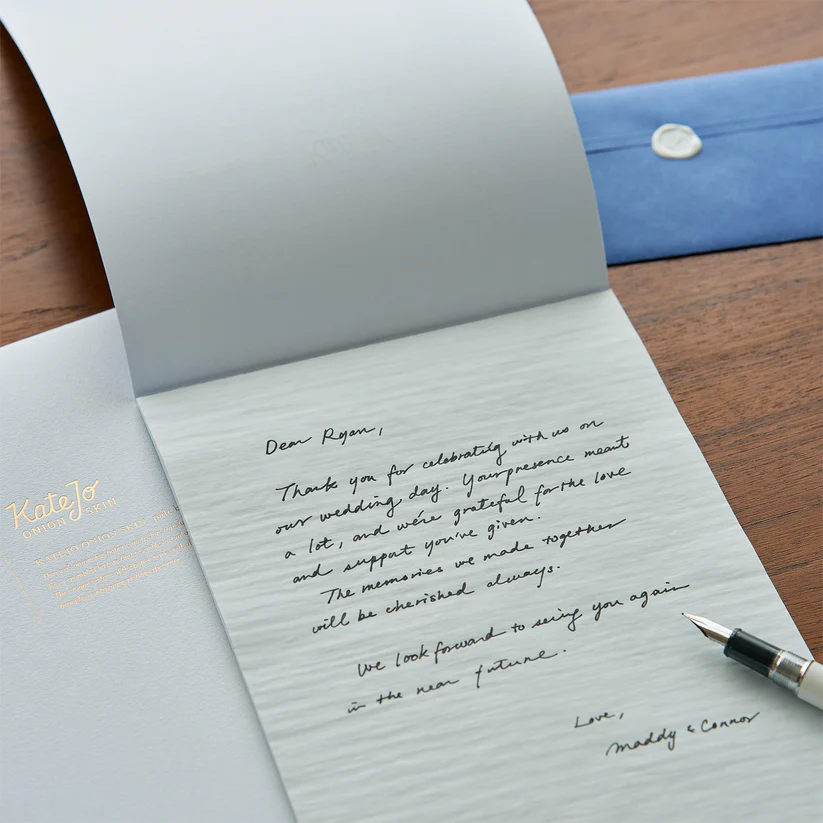 Dear Ryan,
Thank you for celebrating with us on
our wedding day. Your presence meant
a lot, and we're grateful for the love
and support you've given.
The memories we made together
will be cherished always.
We look forward to seeing you again
in the near future.
Love,
Maddy & Connor
KateJo
ONION SKIN